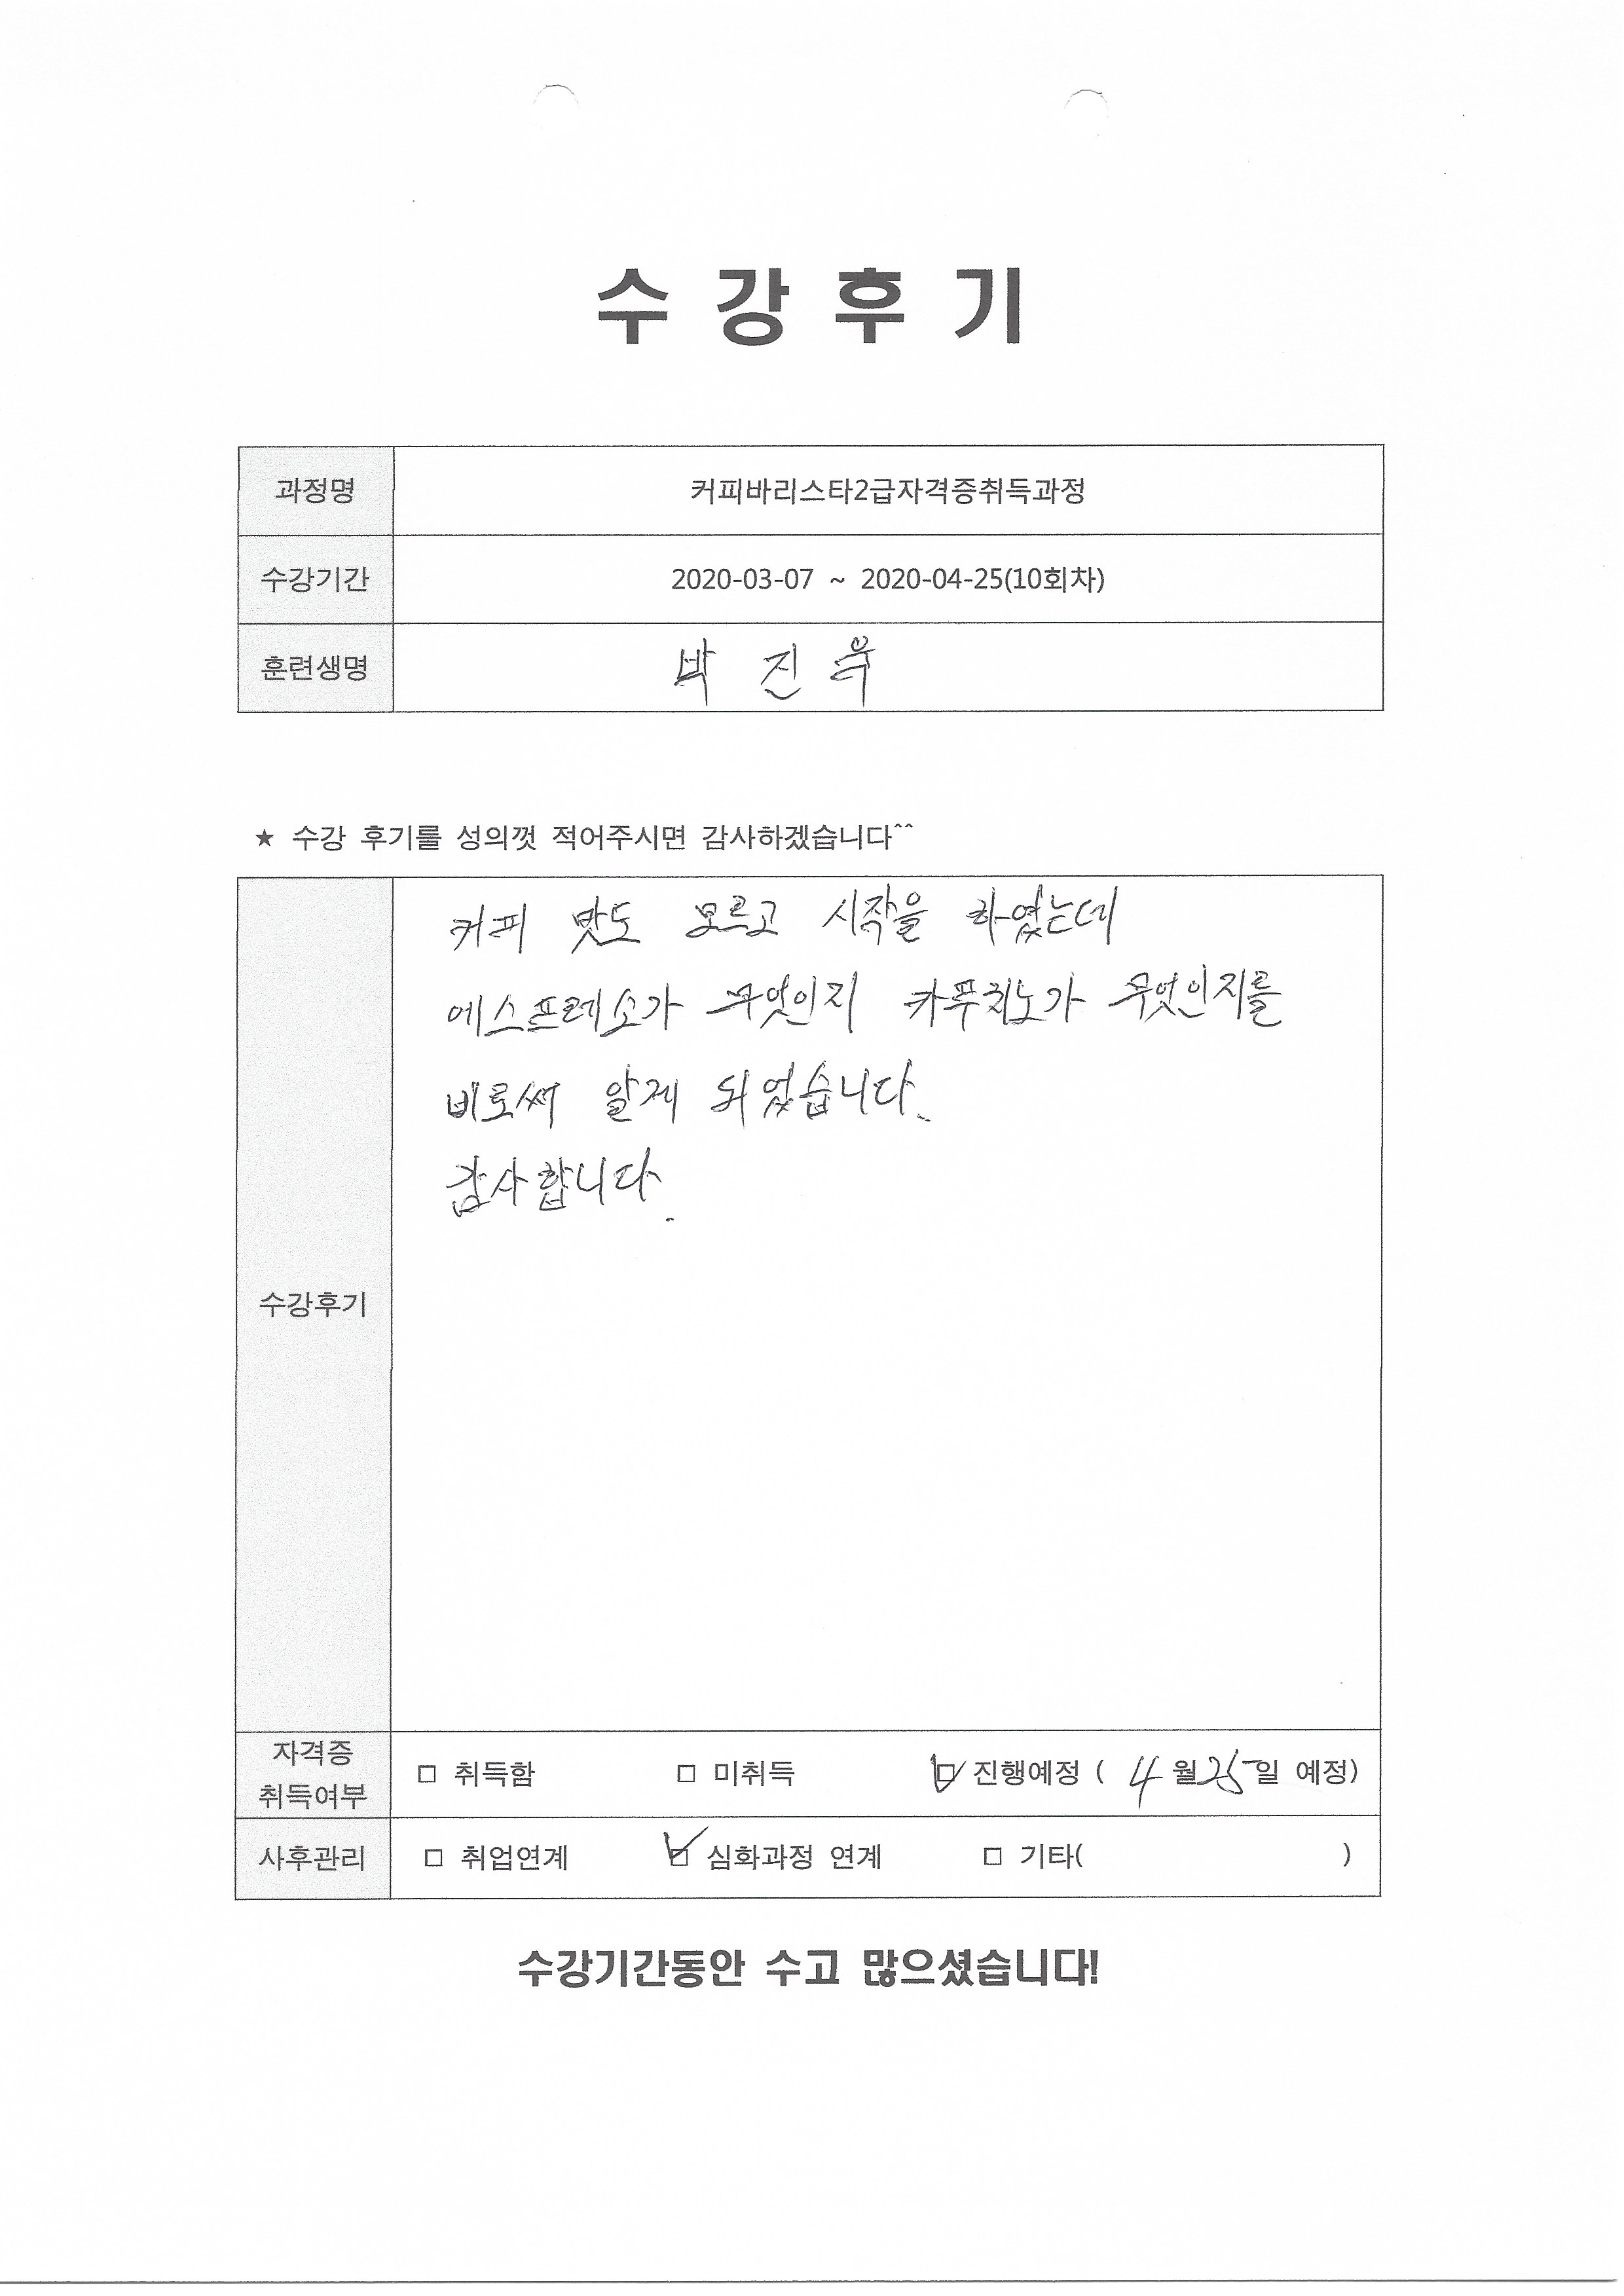 수 강 후 기
과정명 커피바리스타2급자격증취득과정
수강기간 2020-03-07 ~ 2020-04-25(10회차)
훈련생명 박 진 욱
★ 수강 후기를 성의껏 적어주시면 감사하겠습니다^^
커피 맛도 모르고 시작을 하였는데
에스프레소가 무엇인지 카푸치노가 무엇인지를
비로써 알게 되었습니다.
감사합니다.
수강후기
자격증
취득여부
□ 취득함 □ 미취득 ☑ 진행예정 ( 4 월 25 일 예정)
사후관리 □ 취업연계 ☑ 심화과정 연계 □ 기타( )
수강기간동안 수고 많으셨습니다!